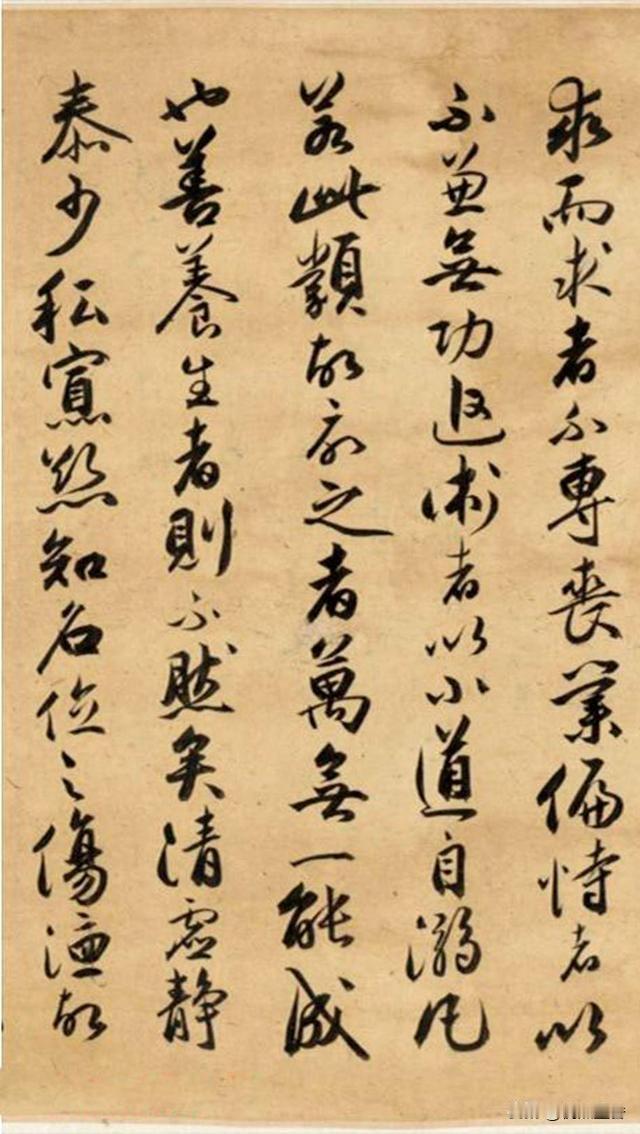 求而求者不專喪業偏恃者以
不兼無功追術者以小道自溺凡
若此類故欲之者萬無一能成
也善養生者則不然矣清虛靜
泰少私寡慾知名位之傷德故